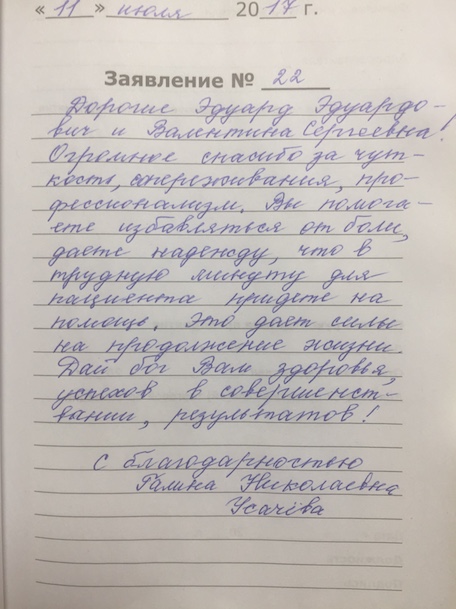 «11» июля 2017 г.
Заявление № 22
Дорогие Эдуард Эдуардо-
вич и Валентина Сергеевна!
Огромное спасибо за чут-
кость, сопереживания, про-
фессионализм. Вы помога-
ете избавляться от боли,
даете надежду, что в
трудную минуту для
пациента придете на
помощь. Это дает силы
на продолжение жизни.
Дай бог Вам здоровья,
успехов в совершенст-
вовании, результатов!
С благодарностью
Галина Николаевна
Усачёва